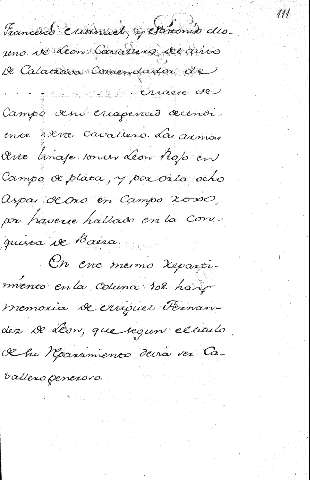 111
Francisco Manuel, y Antonio Mo-
reno de Leon Cavallero del avito
De Calatrava Comendador de
. . . . . . . . . . . . . . de
Campo de
este Cavallero. Las armas
deste linaje son un Leon Rojo en
Campo de plata, y por orla ocho
Aspas de oro en Campo roxo,
por haverse hallado en la Con-
quista de Baeza.
En ese mismo reparti-
miento en la coluna 108 hay
memoria de Miguel Fernan-
dez de Leon, que segun el titulo
de su Repartimiento devia ser Ca-
vallero generoso.